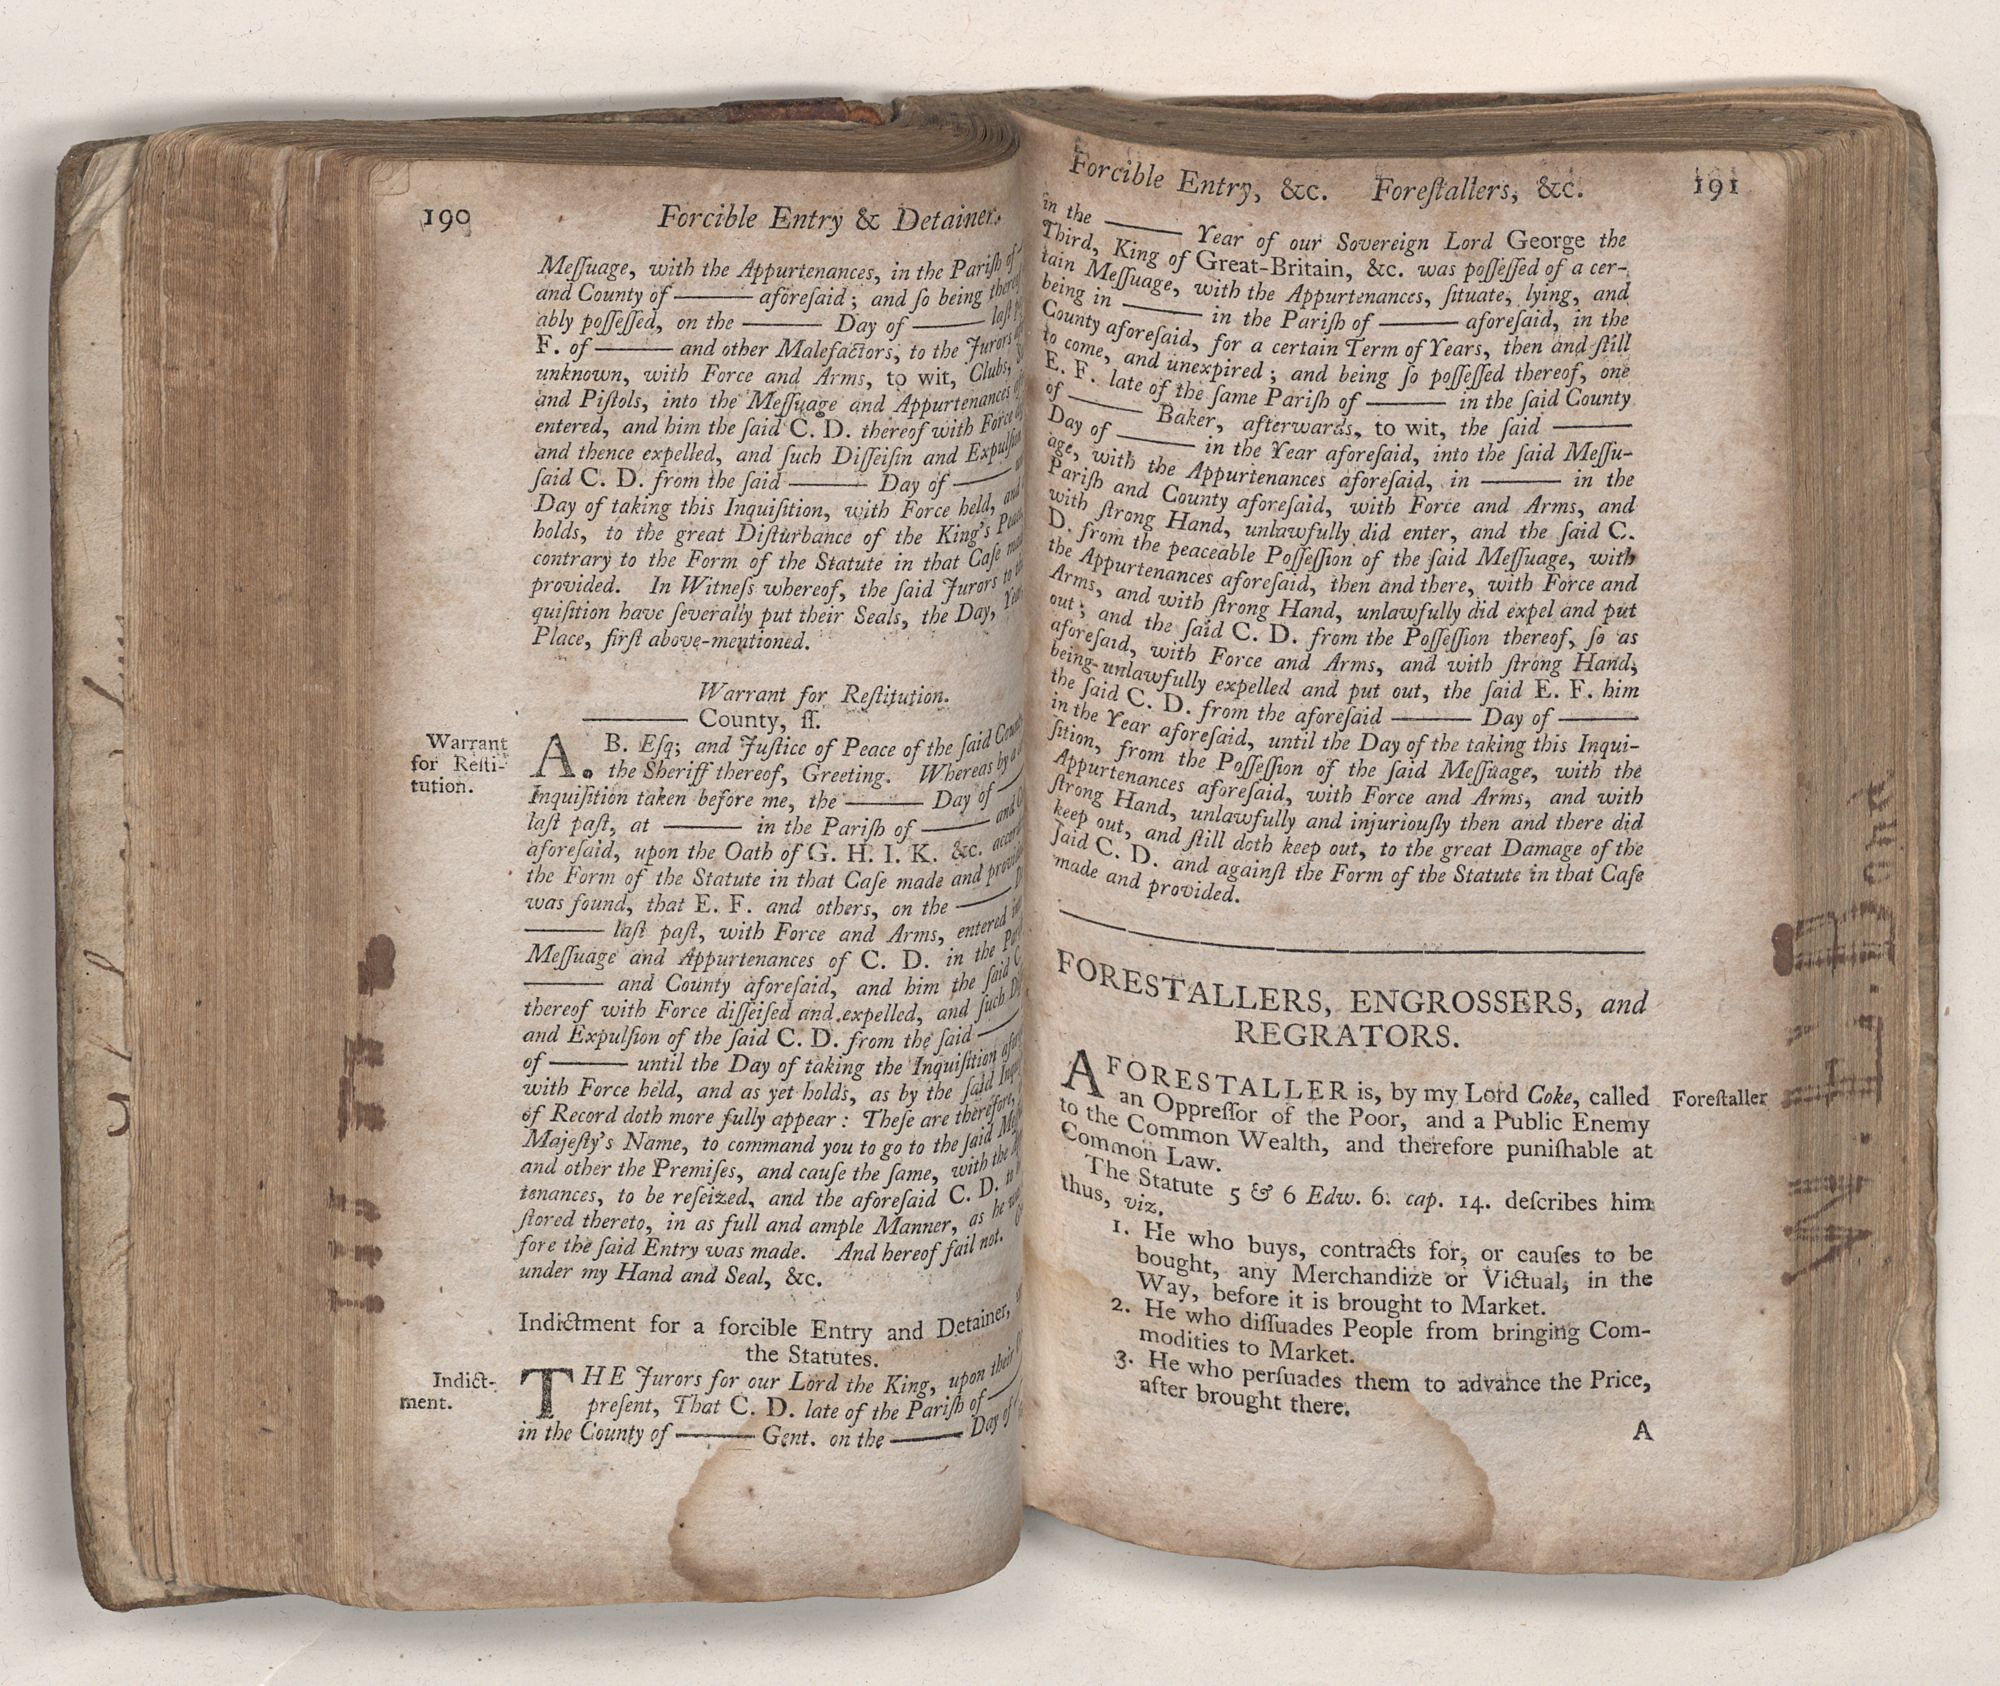 190 Forcible Entry & Detainer.
Meſſuage, with the Appurtenances, in the Pariſh of
and County of ——— aforeſaid; and ſo being
ably poſſeſſed, on the ——— Day of ——— laſt
F. of ——— and other Malefactors, to the Jurors
unknown, with Force and Arms, to wit, Clubs,
and Piſtols, into the Meſſuage and Appurtenances
entered, and him the ſaid C. D. thereof with Force
and thence expelled, and ſuch Diſſeiſin and Expulſion
ſaid C. D. from the ſaid ——— Day of ———
Day of taking this Inquiſition, with Force held, and
holds, to the great Diſturbance of the King's Peace,
contrary to the Form of the Statute in that Caſe
provided. In Witneſs whereof, the ſaid Jurors to
quiſition have ſeverally put their Seals, the Day, Year,
Place, firſt above-mentioned.
Warrant for Reſtitution.
——— County, ſſ.
Warrant for Reſti-tution.
A. B. Eſq; and Juſtice of Peace of the ſaid
the Sheriff thereof, Greeting. Whereas by a
Inquiſition taken before me, the ——— Day of ———
laſt paſt, at ——— in the Pariſh of ——— and
aforeſaid, upon the Oath of G. H. I. K. &c.
the Form of the Statute in that Caſe made and
was found, that E. F. and others, on the ———
——— laſt paſt, with Force and Arms, entered
Meſſuage and Appurtenances of C. D. in the
——— and County aforeſaid, and him the ſaid C.
thereof with Force diſſeiſed and expelled, and ſuch
and Expulſion of the ſaid C. D. from the ſaid ———
of ——— until the Day of taking the Inquiſition
with Force held, and as yet holds, as by the ſaid
of Record doth more fully appear: Theſe are therefore,
Majeſty's Name, to command you to go to the ſaid
and other the Premiſes, and cauſe the ſame, with the
tenances, to be reſeized, and the aforeſaid C. D. to
ſtored thereto, in as full and ample Manner, as he
fore the ſaid Entry was made. And hereof fail not.
under my Hand and Seal, &c.
Indictment for a forcible Entry and Detainer,
the Statutes.
Indict-ment.
THE Jurors for our Lord the King, upon their
preſent, That C. D. late of the Pariſh of ———
in the County of ——— Gent. on the ——— Day of
Forcible Entry, &c. Foreſtallers, &c. 191
in the ——— Year of our Sovereign Lord George the
Third, King of Great-Britain, &c. was poſſeſſed of a cer-
tain Meſſuage, with the Appurtenances, ſituate, lying, and
being in ——— in the Pariſh of ——— aforeſaid, in the
County aforeſaid, for a certain Term of Years, then and ſtill
to come, and unexpired; and being ſo poſſeſſed thereof, one
E. F. late of the ſame Pariſh of ——— in the ſaid County
of ——— Baker, afterwards, to wit, the ſaid ———
Day of ——— in the Year aforeſaid, into the ſaid Meſſu-
age, with the Appurtenances aforeſaid, in ——— in the
Pariſh and County aforeſaid, with Force and Arms, and
with ſtrong Hand, unlawfully did enter, and the ſaid C.
D. from the peaceable Poſſeſſion of the ſaid Meſſuage, with
the Appurtenances aforeſaid, then and there, with Force and
Arms, and with ſtrong Hand, unlawfully did expel and put
out; and the ſaid C. D. from the Poſſeſſion thereof, ſo as
aforeſaid, with Force and Arms, and with ſtrong Hand,
being unlawfully expelled and put out, the ſaid E. F. him
the ſaid C. D. from the aforeſaid ——— Day of ———
in the Year aforeſaid, until the Day of the taking this Inqui-
ſition, from the Poſſeſſion of the ſaid Meſſuage, with the
Appurtenances aforeſaid, with Force and Arms, and with
ſtrong Hand, unlawfully and injuriouſly then and there did
keep out, and ſtill doth keep out, to the great Damage of the
ſaid C. D. and againſt the Form of the Statute in that Caſe
made and provided.
FORESTALLERS, ENGROSSERS, and
REGRATORS.
A FORESTALLER is, by my Lord Coke, called
Foreſtaller
an Oppreſſor of the Poor, and a Public Enemy
to the Common Wealth, and therefore puniſhable at
Common Law.
The Statute 5 & 6 Edw. 6. cap. 14. deſcribes him
thus, viz.
1. He who buys, contracts for, or cauſes to be
bought, any Merchandize or Victual, in the
Way, before it is brought to Market.
2. He who diſſuades People from bringing Com-
modities to Market.
3. He who perſuades them to advance the Price,
after brought there.
A